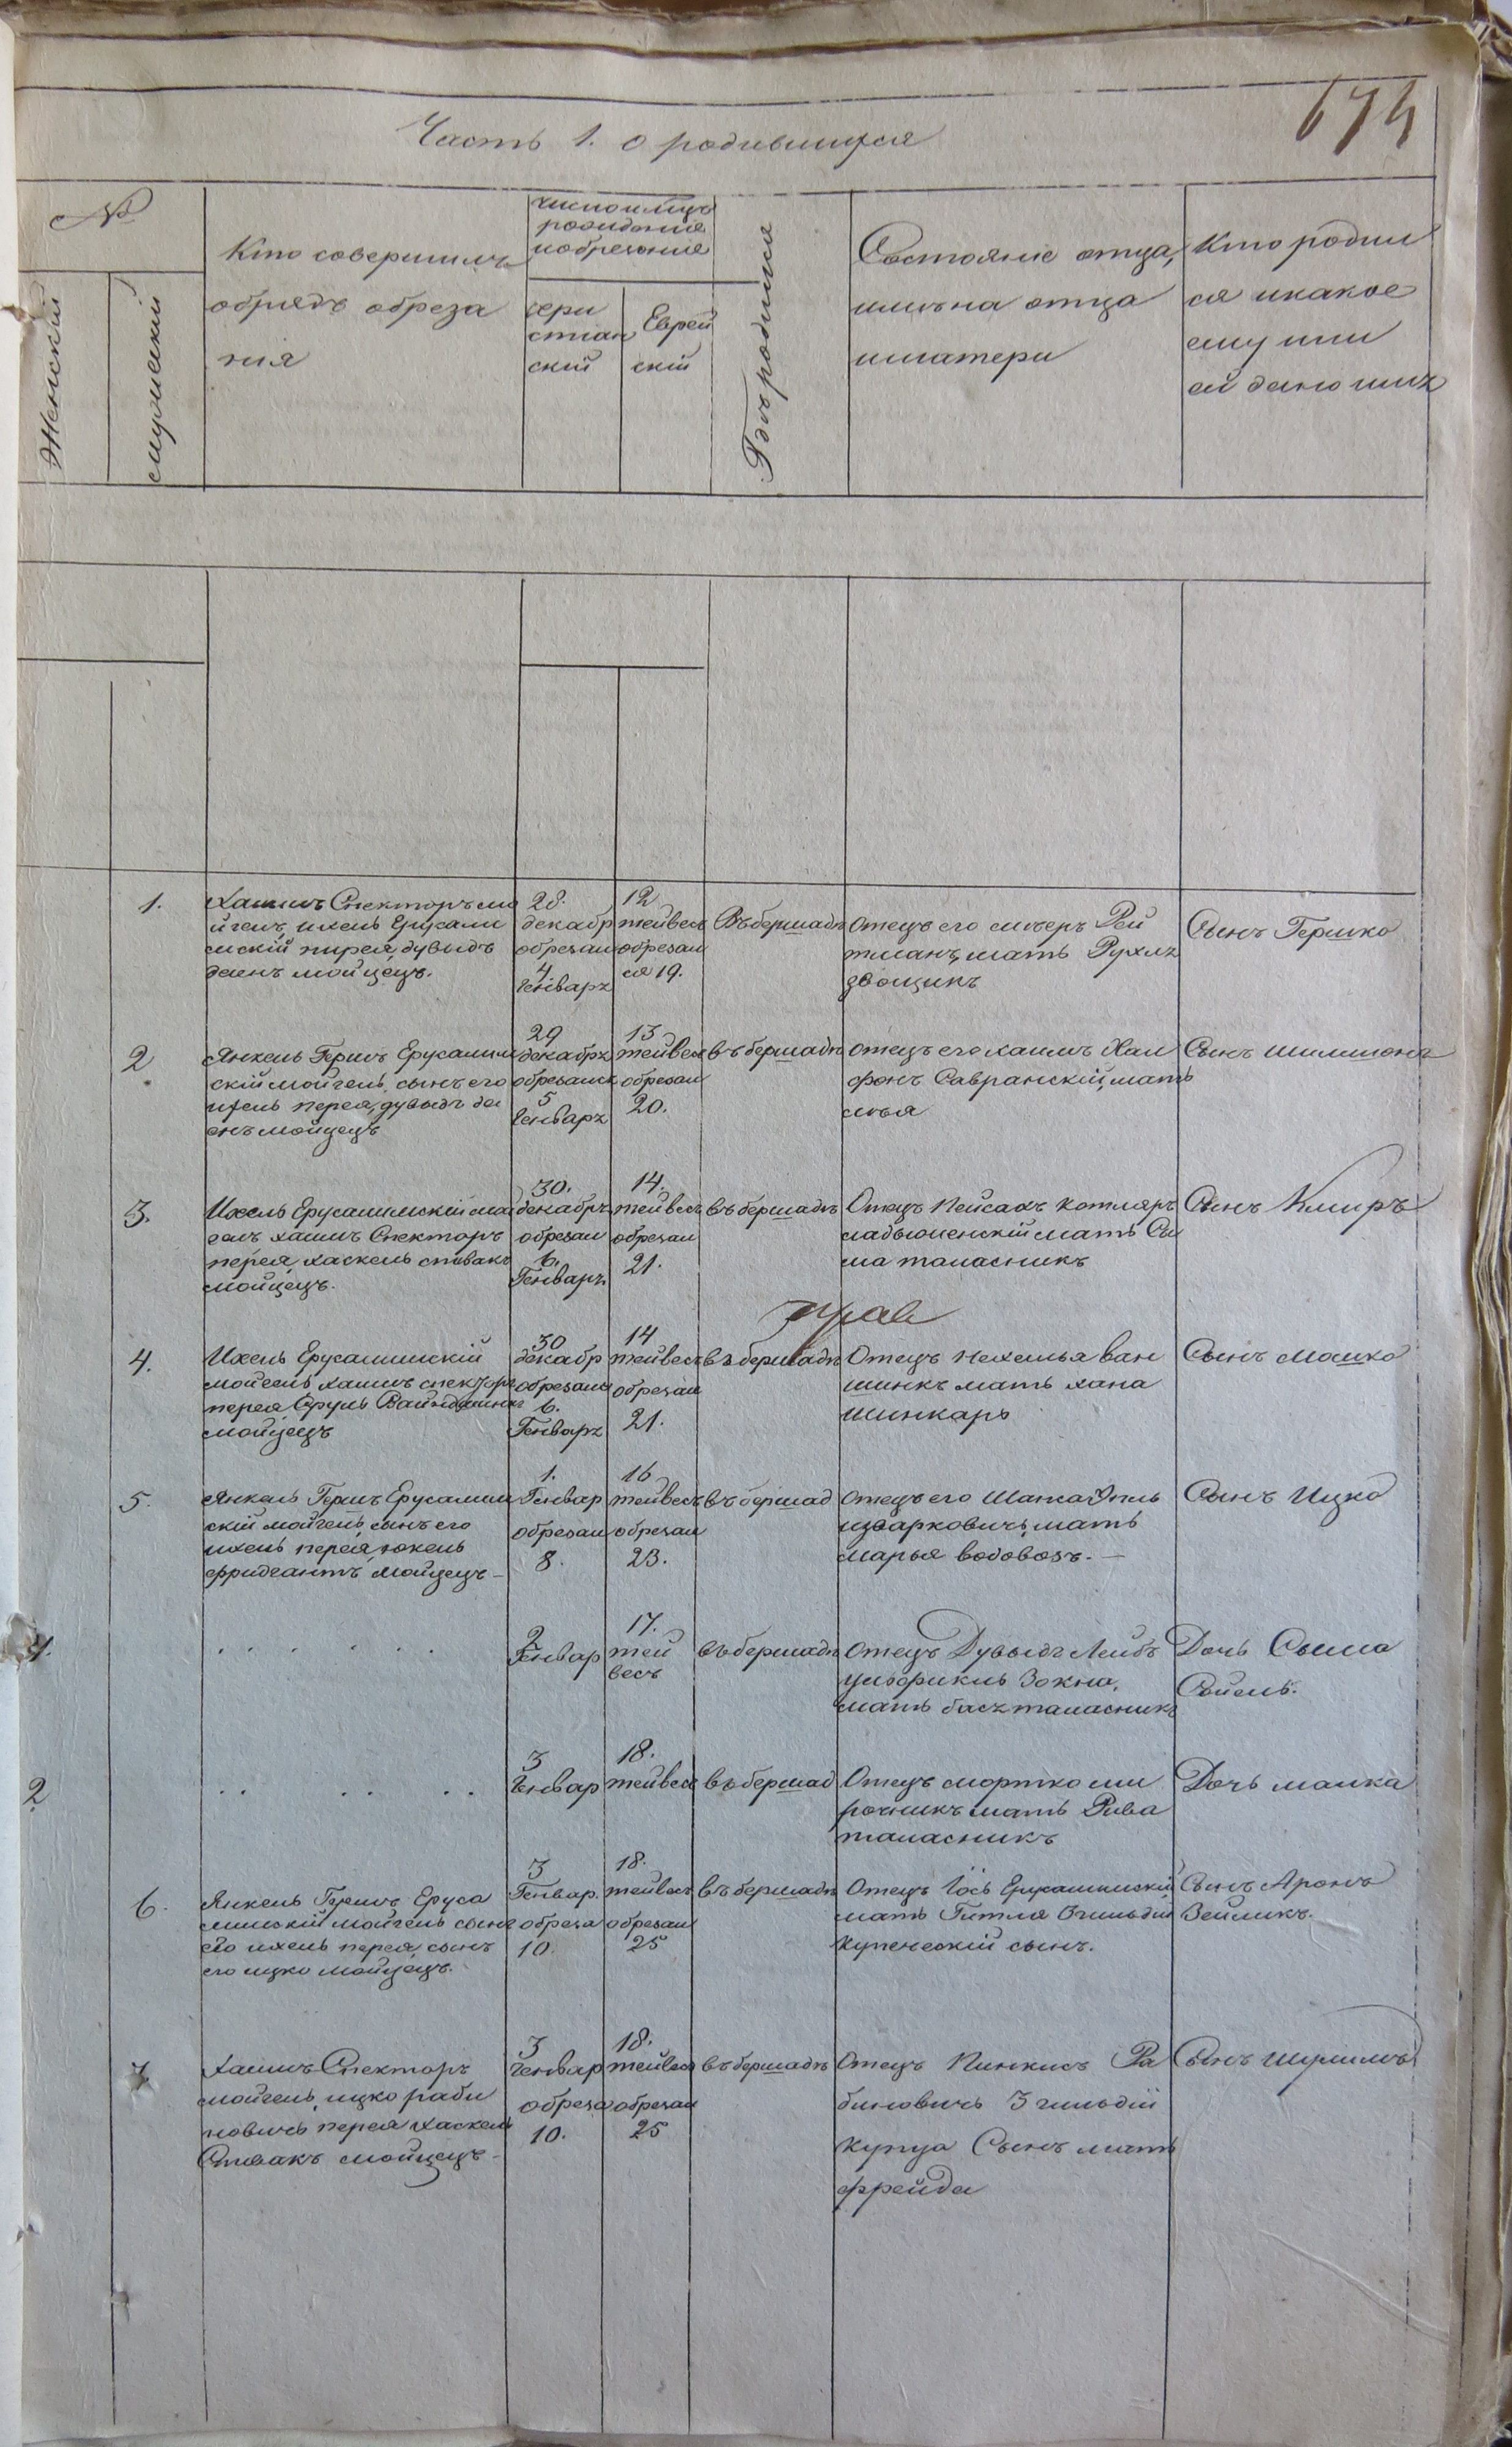 674
Часть 1. о родившихся
№
Женский
мужеский
Кто совершилъ
обрядъ обреза
ния
число имцъ
рождения
иобрезания
хри
стиан
ский
Еврей
ский
Гдъ родился
Состояние отца,
имъна отца
иматери
Кто родил
ся икакое
ему или
ей дано имя
1.
Хаимъ Спекторъ мо
йгелъ, ихель Ерусали
мский пирея, дувыдъ
даенъ мойцецъ.
28.
декабр
обрезан
4.
Генваря
12
тейвесъ
обрезан
ся 19.
Въ бершадъ
Отецъ его мъер Рей
тманъ, мать Рухля
звощикъ
Сынъ Гершко
2
Янкель Гершъ Ерусалим
ский мойгель, сынъ его
ихель перея, дувыдъ да
енъ мойцецъ
29
декабря
обрезанъ
5
Генваря
13
тейвесъ
обрезан
20.
въ бершадъ
Отецъ его хаимъ Хал
фонъ Савранский, мать
лъя
Сынъ шилимонъ
3.
Ихель Ерусалимский мой
гелъ хаимъ Спекторъ
перея, хаскель спивакъ
мойцецъ.
30.
декабръ
обрезан
6.
Генваръ
14.
тейвесъ
обрезан
21.
въ бершадъ
Отецъ Пейсахъ котляръ
мать Си
ма таласникъ
Сынъ Кмиръ
4.
Ихель Ерусалимский
мойгель хаимъ спекторъ
перея, Сруль
мойцецъ
30
декабр
обрезан
6.
Генваря
14
тейвесъ
обрезан
21.
въ бершадъ
Отецъ Нехемья ван
шинкъ мать хана
шинкарь
Сынъ Мошко
5.
Янкель Гершъ Ерусалим
ский мойгель, сынъ его
ихель перея, юкель
фридгантъ, мойцецъ –
1.
Генвар
обрезан
8.
16
тейвесъ
обрезан
23.
въ бершад
Отецъ его
мать
марья водовозъ. —
Сынъ Ицко
1.
. . . . . .
2
Генвар
17.
тей
весъ
въ бершадъ
Отецъ Дувыдъ Лейбъ
Зокна,
мать бася таласникъ
Дочь Сыма
2
. . . . . .
3
Генвар
18.
тейвесъ
въ бершад
Отецъ мортко ми
рочникъ мать Рива
таласникъ
Дочь малка
6.
Янкель Гершъ Еруса
лимский мойгель сынъ
его ихель перея, сынъ
его ицко мойцецъ.
3
Генвар.
обреза
10.
18.
тейвесъ
обрезан
25
въ бершадъ
Отецъ Іось Ерусалимский
мать Гитля 3 гильдии
купеческий сынъ.
Сынъ Аронъ
Зейликъ.
7
Хаимъ Спекторъ
мойгель, ицко раби
новичь перея хаскель
Спивакъ мойцецъ –
3
Генвар
обреза
10.
18.
тейвесъ
обрезан
25
въ бершадъ
Отецъ Пинкисъ Ра
биновичь 3 гильдии
купца Сынъ мать
фрейда
Сынъ шулимъ